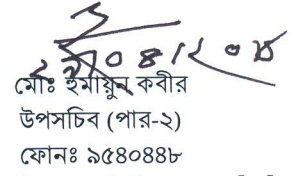 মোঃ হুমায়ুন কবীর
উপসচিব (পার-২)
ফোনঃ ৯৫৪০৪৪৮